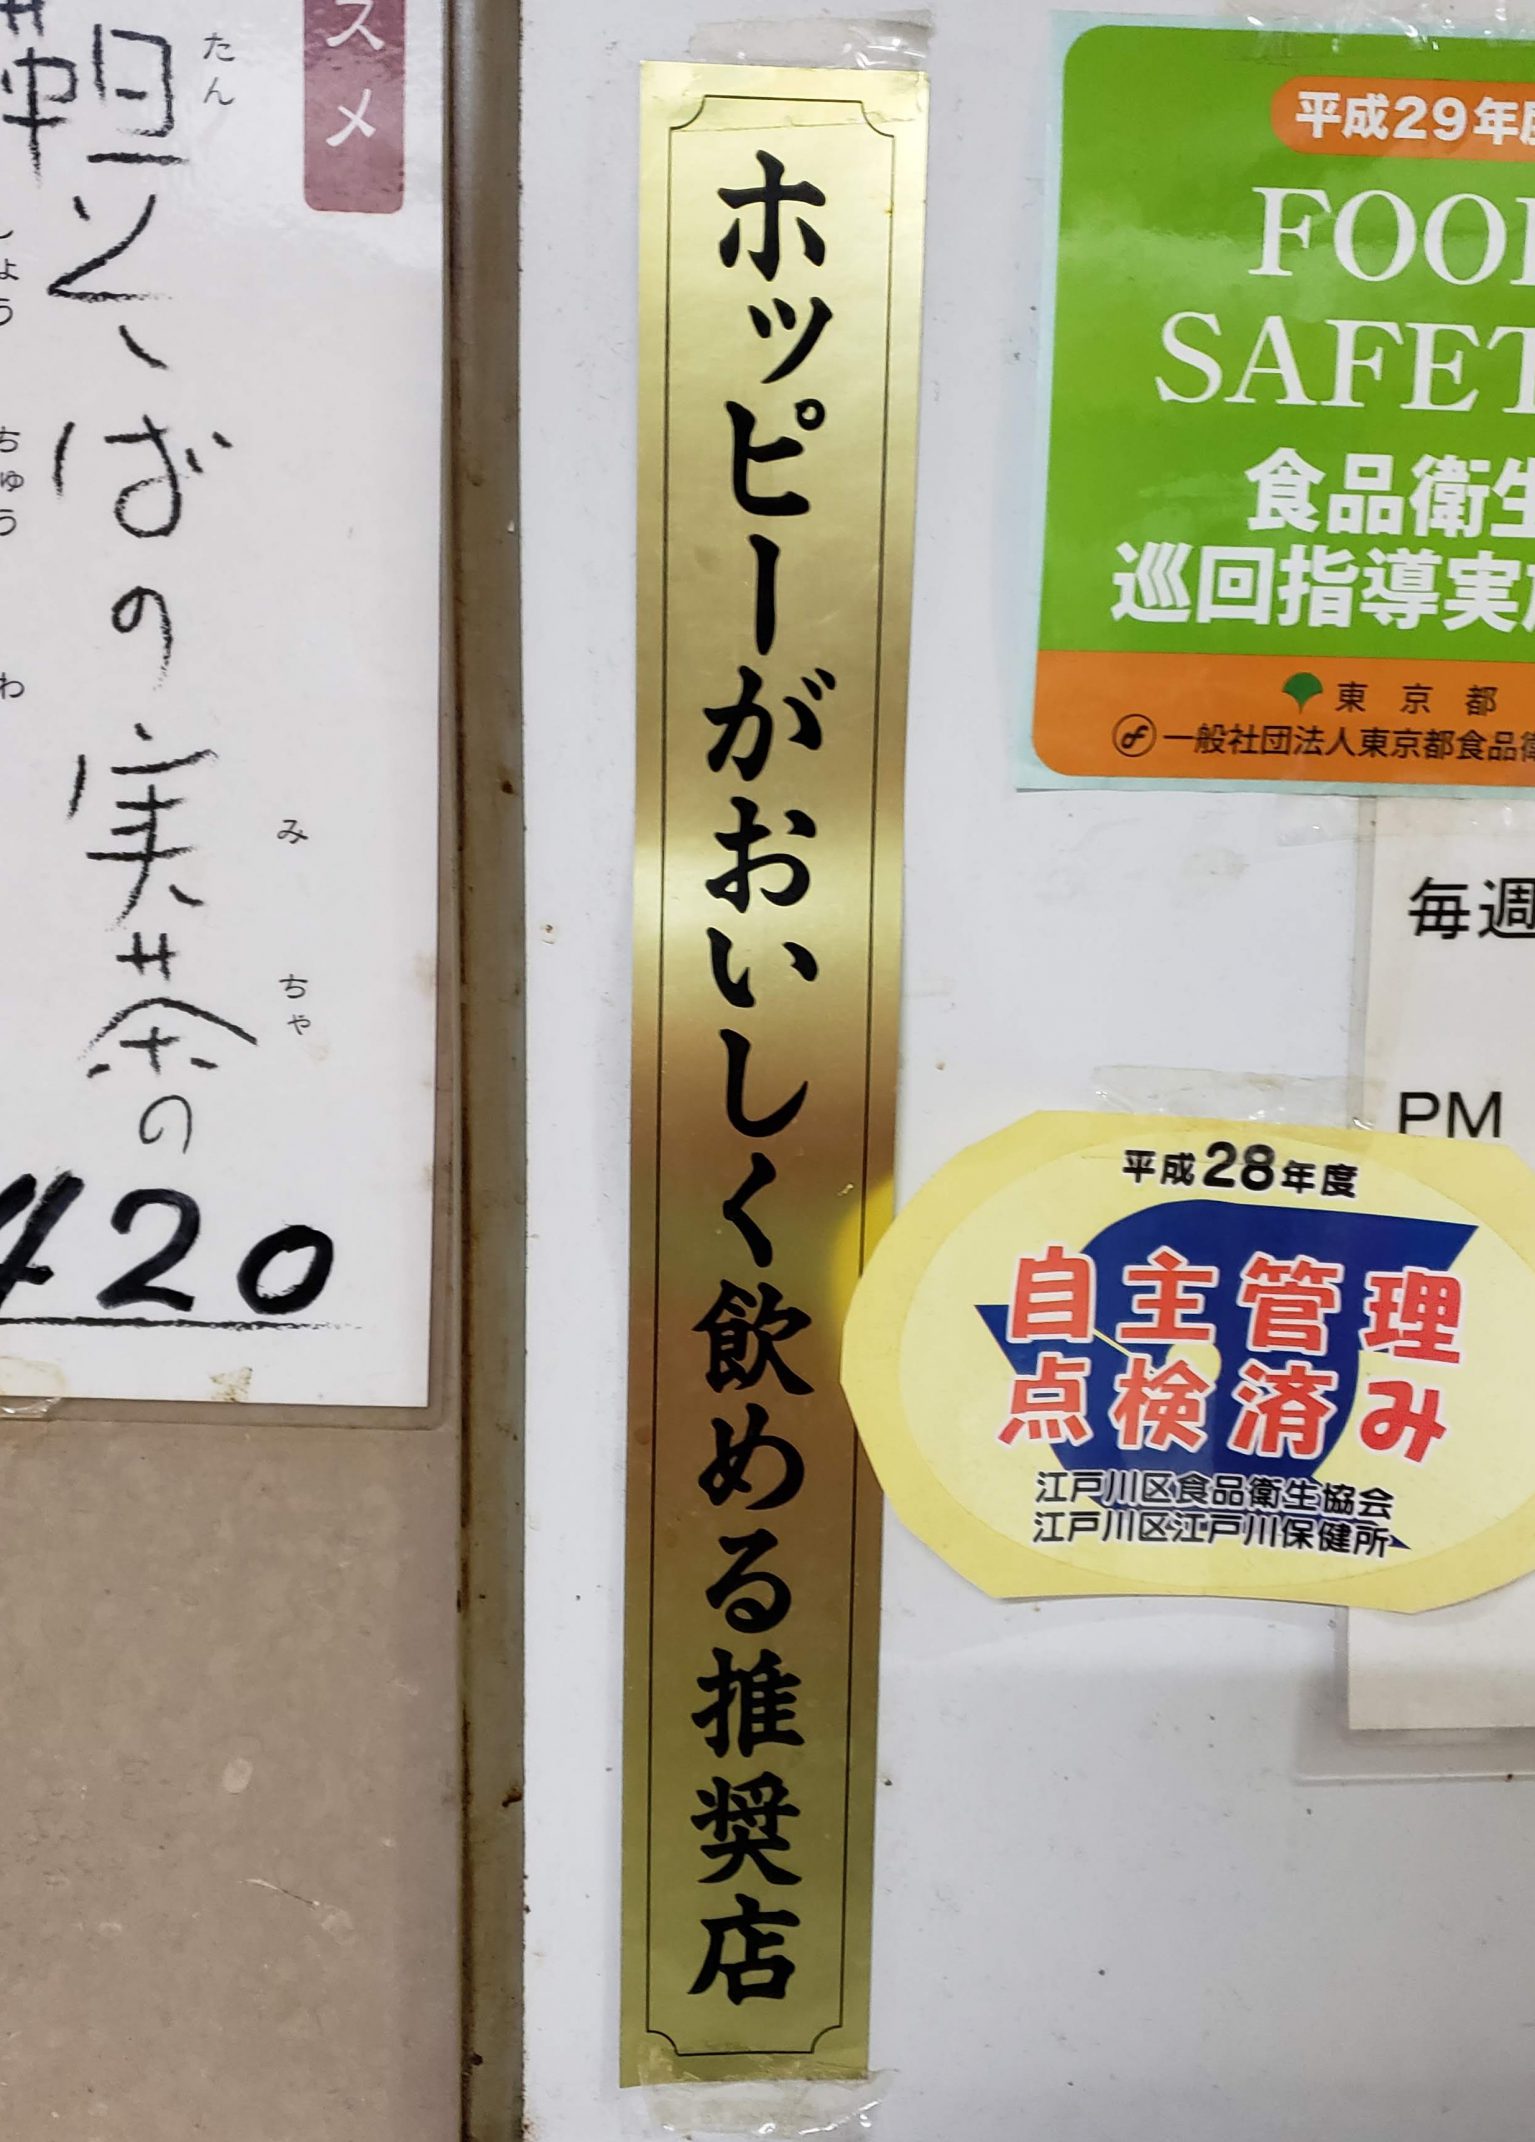 スメ
たん
そばの実茶の
みちゃ
しょうちゅう
わ
420
ホッピーがおいしく飲める推奨店
平成29年度
FOOD
SAFET
食品衛生
巡回指導実施
東京都
一般社団法人東京都食品衛
毎週
PM
平成28年度
自主管理
点検済み
江戸川区食品衛生協会
江戸川区江戸川保健所